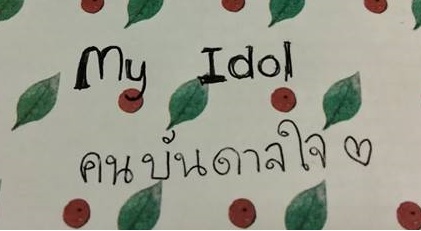 My Idol
คนบันดาลใจ ♡